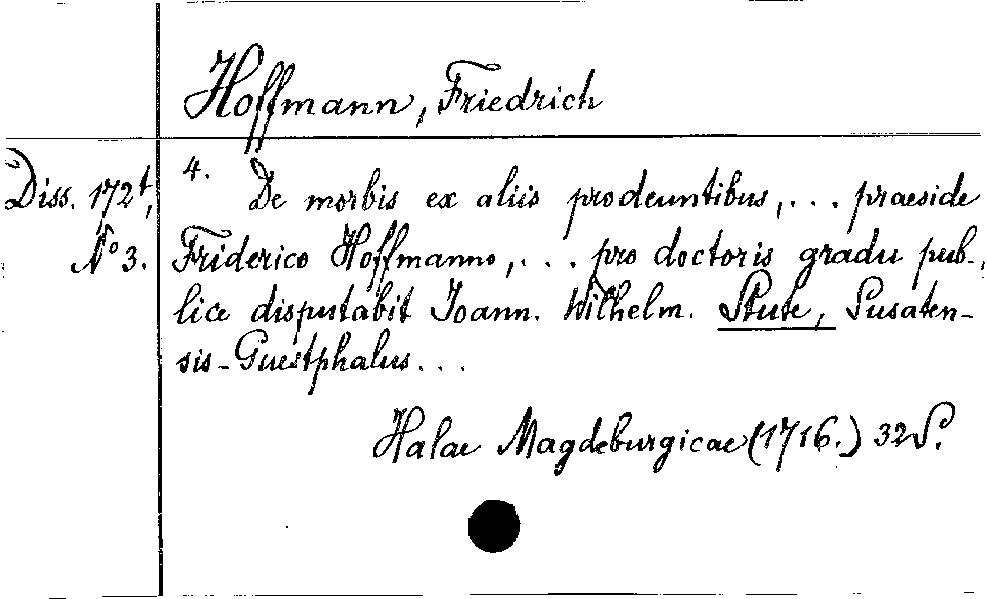 Hoffmann, Friedrich
Diss. 172t,
No 3.
4. De morbis ex aliis prodeuntibus, . . . praeside
Friderico Hoffmanno, . . . pro doctoris gradu pub-
lice disputabit Joann. Wilhelm. Stute, Susaten-
sis-Guestphalus . . .
Halae Magdeburgicae (1716.) 32 S.